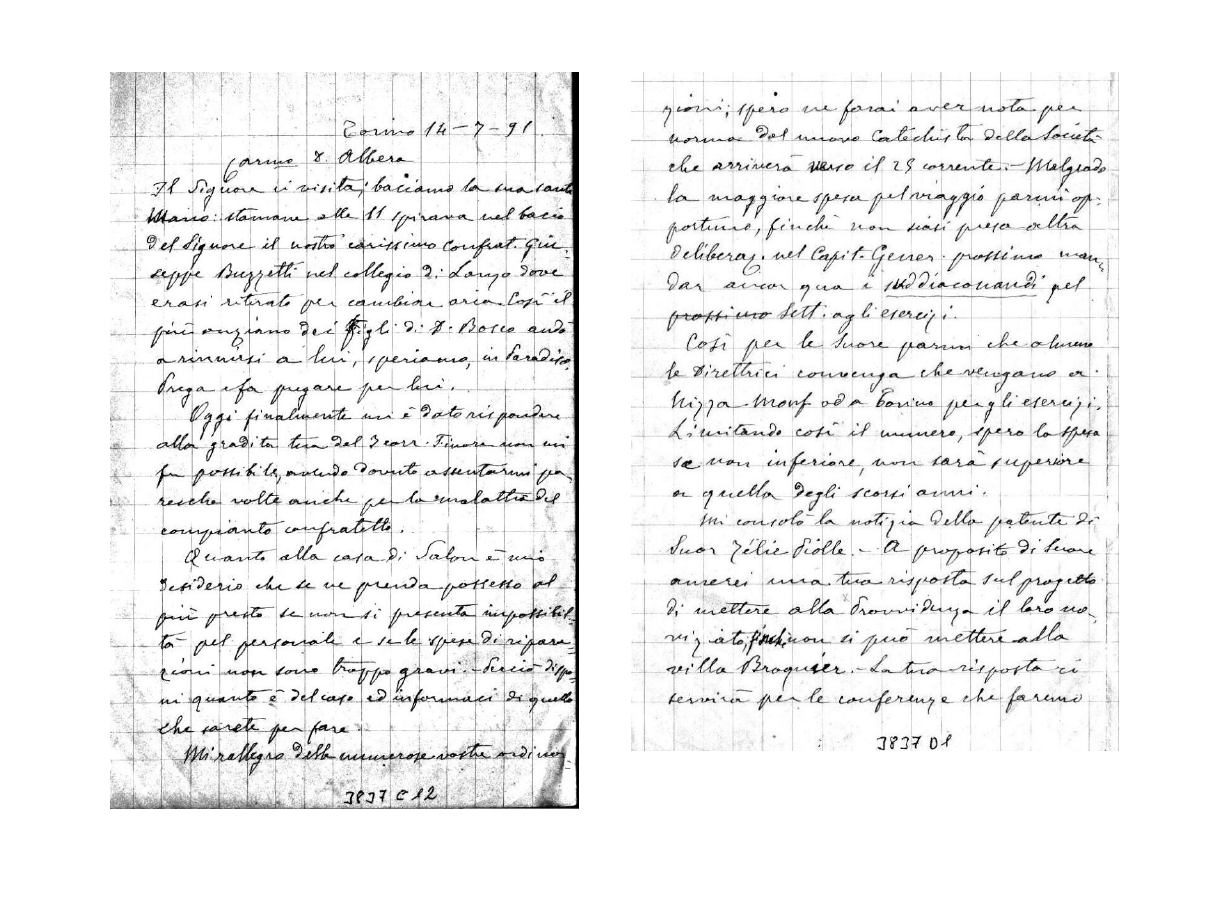 Torino 14-7-91
Carmo D. Albera
Il Signore ci visita; baciamo la sua santa
Mano: stamane alle 11 spirava nel bacio
del Signore il nostro carissimo confrat. Giu-
seppe Buzzetti nel collegio di Lanzo dove
erasi ritirato per cambiar aria. Così il
più anziano dei figli di D. Bosco andò
a riunirsi a lui, speriamo, in Paradiso.
Prega e fa pregare per lui.
Oggi finalmente mi è dato rispondere
alla gradita tua del 3 corr. Finora non mi
fu possibile, avendo dovuto assentarmi pa-
recchie volte anche per la malattia del
compianto confratello.
Quanto alla casa di Salon è mio
desiderio che se ne prenda possesso al
più presto se non si presenta impossibili-
tà pel personale e se le spese di ripara-
zioni non sono troppo gravi. - Perciò dispo-
ni quanto è del caso ed informaci di quello
che sarete per fare.
Mi rallegro delle numerose vostre ordina-
3837 C 12
zioni; spero ne farai aver nota per
norma del nuovo Catechista della Società
che arriverà verso il 25 corrente. - Malgrado
la maggiore spesa pel viaggio parmi op-
portuno, finchè non siasi presa altra
deliberaz. nel Capit. Gener. prossimo man-
dar ancor qua i suddiaconandi pel
prossimo Sett. agli esercizi.
Così per le Suore parmi che almeno
le Direttrici convenga che vengano a
Nizza Monf od a Torino per gli esercizi.
Limitando così il numero, spero la spesa
se non inferiore, non sarà superiore
a quella degli scorsi anni.
Mi consolò la notizia della patente di
Suor Zélie Piolle. - A proposito di Suore
amerei una tua risposta sul progetto
di mettere alla Provvidenza il loro no-
viziato, finchè non si può mettere alla
villa Broquier. - La tua risposta ci
servirà per le conferenze che faremo
3837 D1